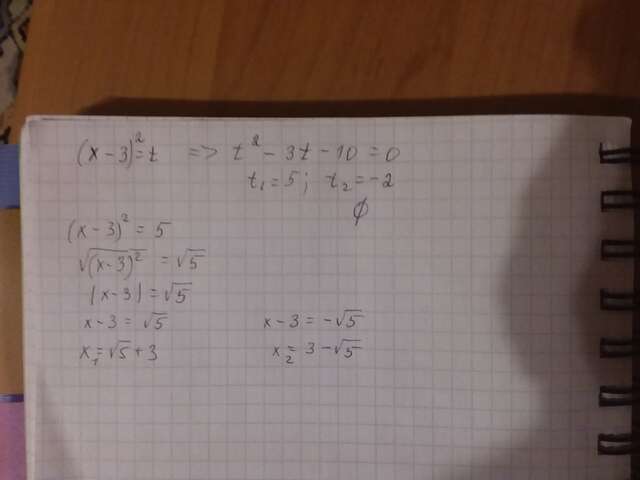 (x-3)²=t => t²-3t-10=0
t₁=5; t₂=-2
∅
(x-3)²=5
√(x-3)² = √5
|x-3|=√5
x-3=√5 x-3=-√5
x₁=√5+3 x₂=3-√5